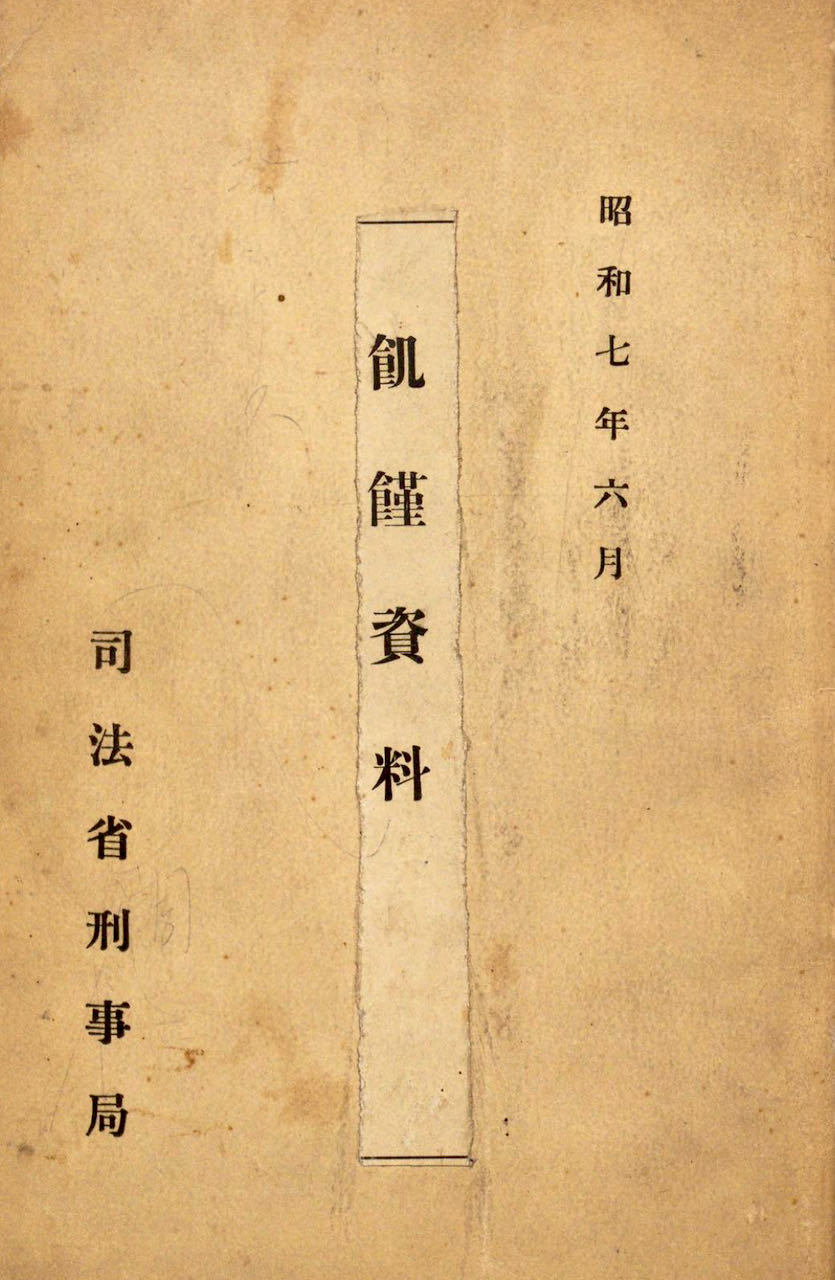 昭和七年六月
飢饉資料
司法省刑事局